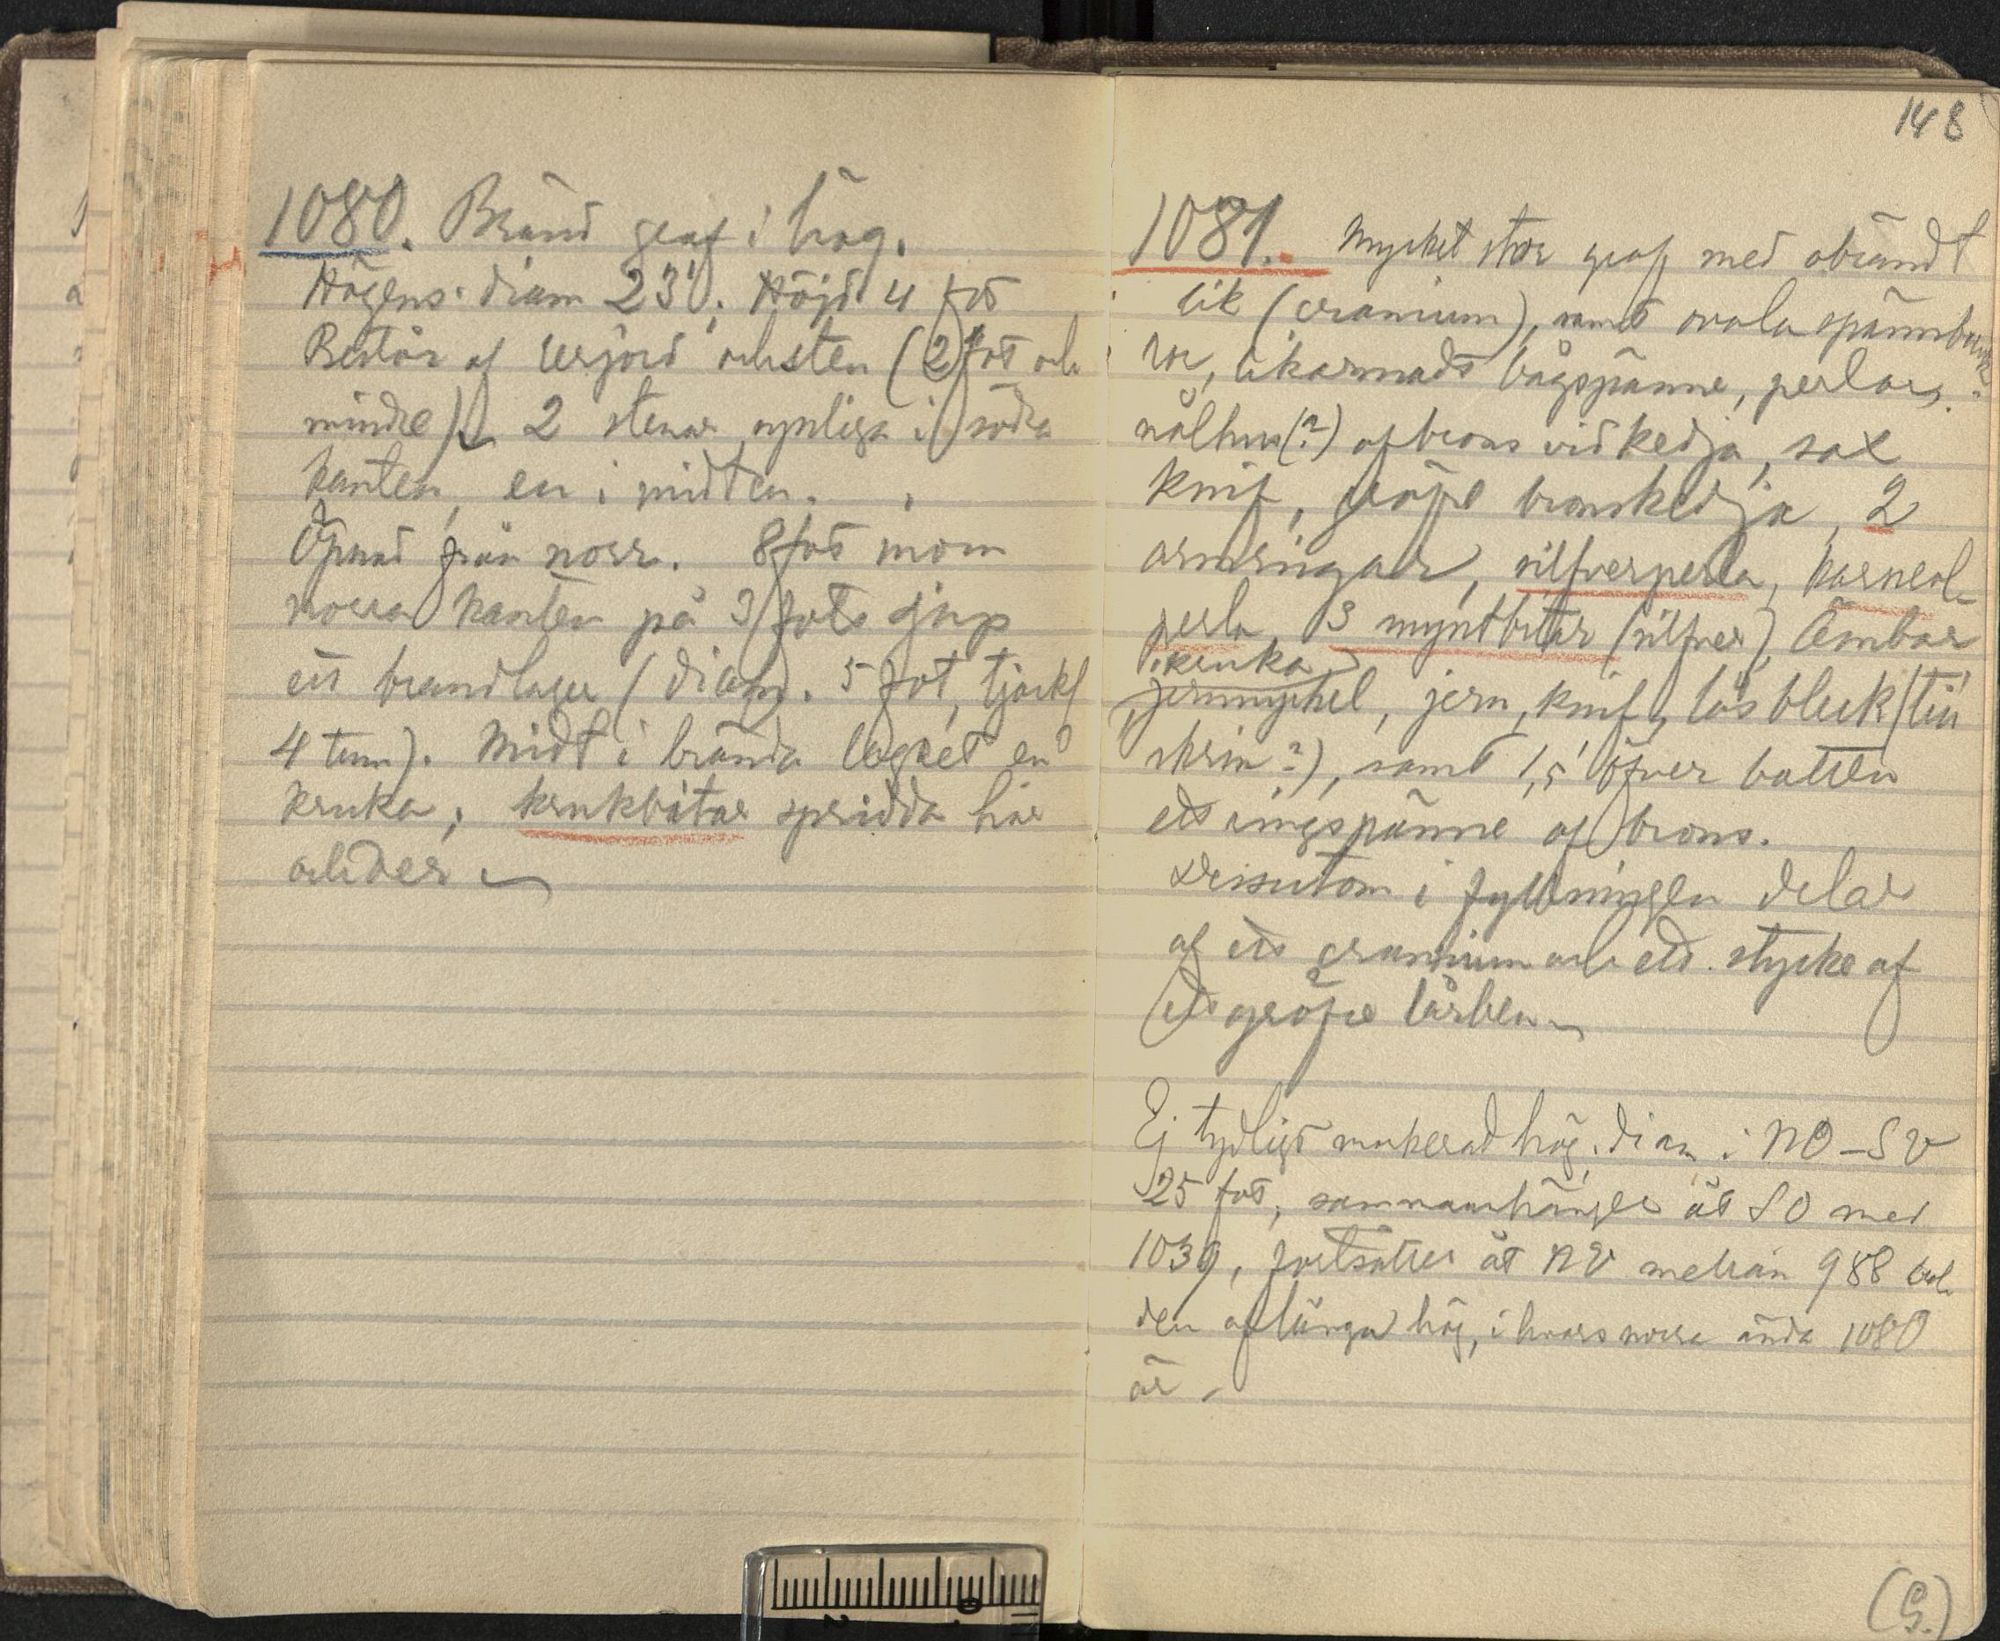 1080. Bränd graf i hög.
Högens diam 23'; Höjd 4 fot
Består af lerjord och sten (2 fot och
mindre). 2 stenar synliga i södra
kanten, en i midten.
Öpnad från norr. 8 fot inom
norra kanten på 3 fots djup
ett brandlager (diam. 5 fot, tjockl
4 tum). Midt i brända lagret en
kruka; krukbitar spridda här
och der
148
1081. Mycket stor graf med obrändt
lik (cranium), samt ovala spännbuck-
lor, likarmadt bågspänne, perlor,
nålhus (?) af brons vid kedja, sax
knif, gröfre bronskedja, 2
armringar, silfverperla, karneol-
perla, 3 myntbitar (silfver), Ämbar
kruka
jernnyckel, jern, knif, låsbleck (till
skrin?), samt 1,5' öfver botten
ett ringspänne af brons.
Dessutom i fyllningen delar
af ett cranium och ett stycke af
ett gröfre lårben
Ej tydligt markerad hög, diam i NO–SV
25 fot, sammanhänger åt SO med
1039, fortsätter åt NV mellan 988 och
den aflånga hög, i hvars norra ända 1080
är –
(G.)